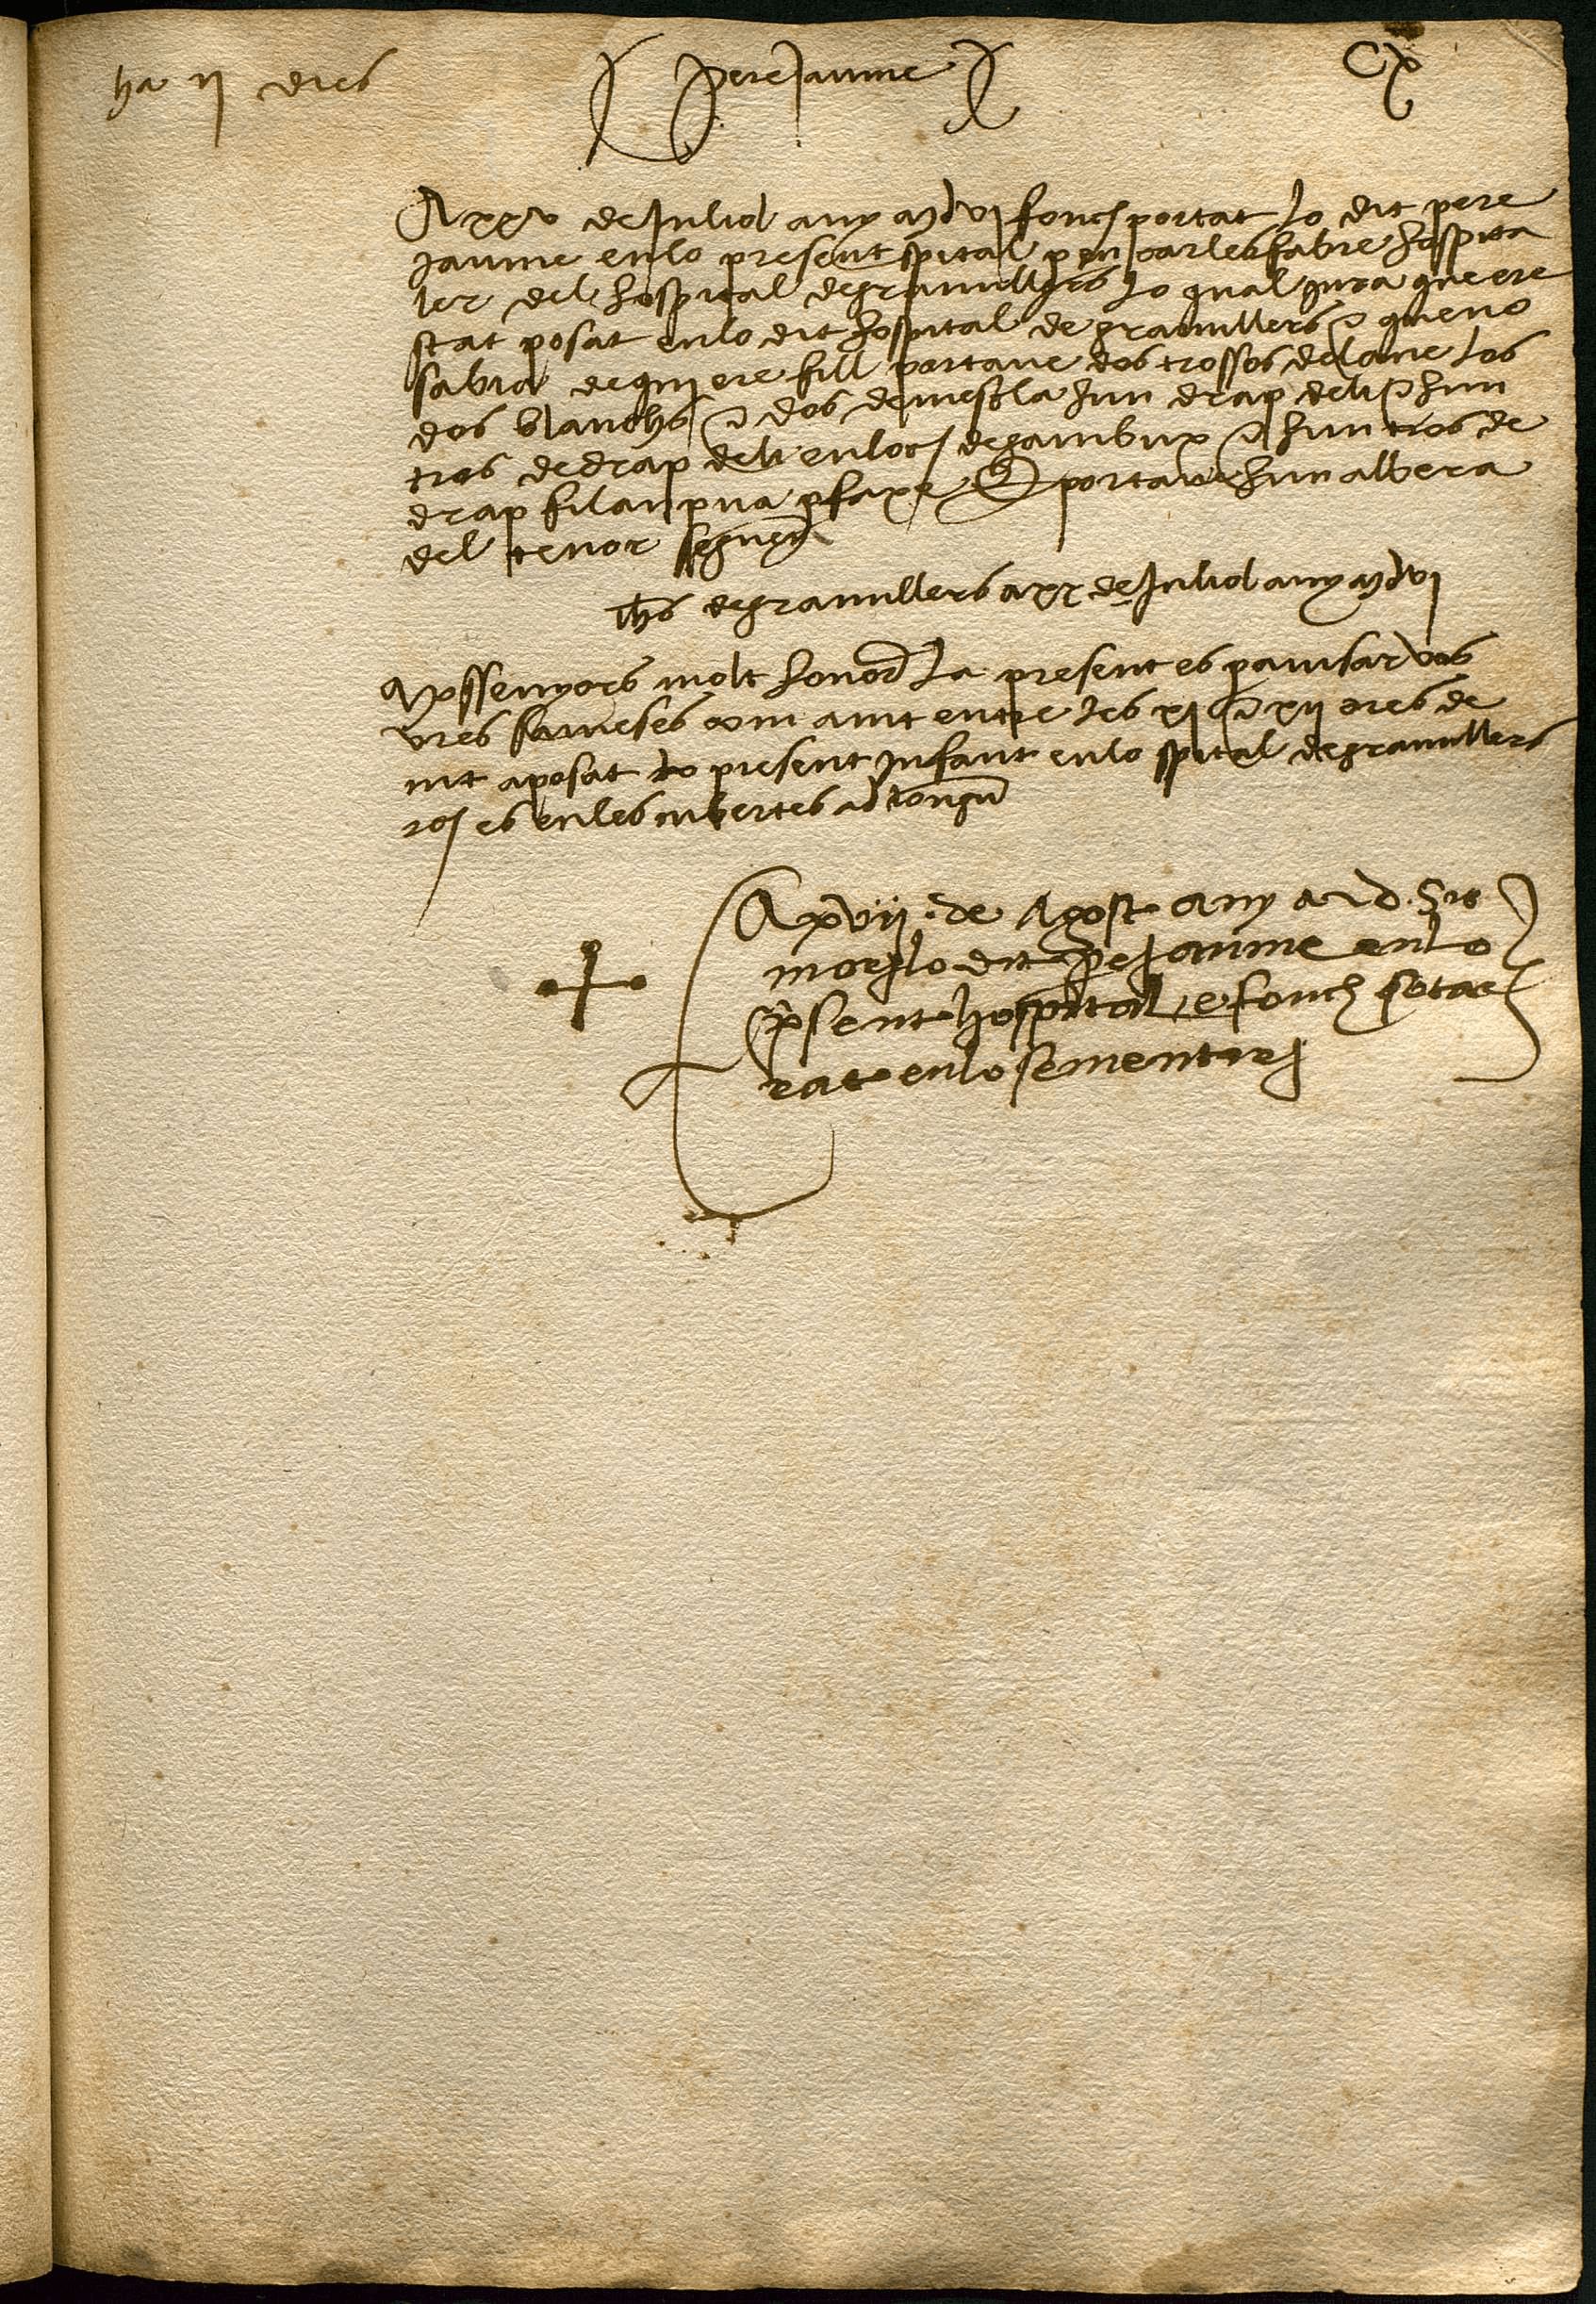 ha ij dies
Pere Jaume
Cx
A xxv de Juliol any mdvj fonch portat lo dit pere
jaume en lo present spital per en carles fabre hospita
ler del hospital de granullers lo qual jura que ere
stat posat en lo dit hospital de granullers e que no
sabia de qui ere fill portave dos trossos de lane los
dos blanchs e dos de mescla hun drap de li e hun
tros de drap de li en loch de gambux e hun tros de
drap filanpua p faxe E portave hun albera
del tenor seguent
Ihs de granullers a xx de Juliol any mdvj
Mossenyors molt honor la present es p avisar vos
vres savieses com anit entre les xj e xij ores de
nit a posat lo present infant en lo spital de granullers
roj es en les cubertes
A xviij de Agost any m d sis
morj lo dit pe jaume en lo
psent hospital e fonch sotar
rat en lo sementirj